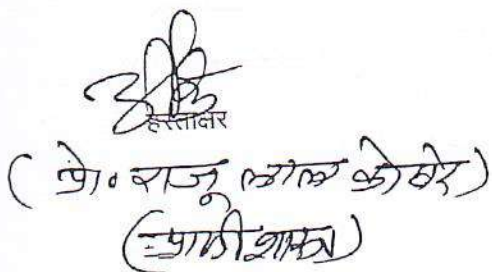 हस्ताक्षर
(प्रो. राजू लाल कोसरे)
(प्राणीशास्त्र)